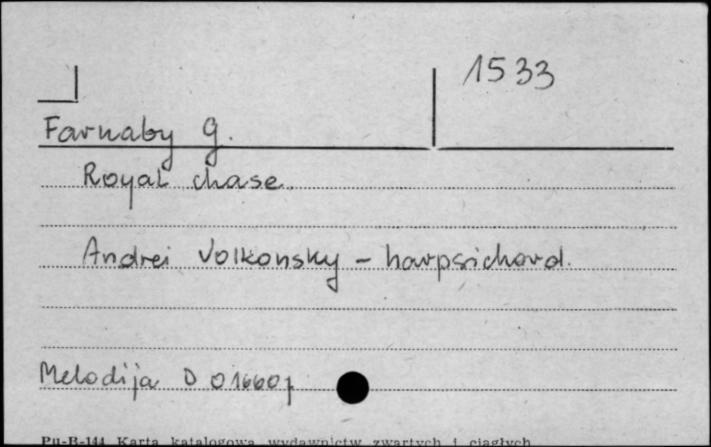 1533
Farnaby G.
Royal chase.
Andrei Volkonsky - harpsichord.
Melodija D 016607
Pu-B-144 Karta katalogowa wydawnictw zwartych i ciągłych